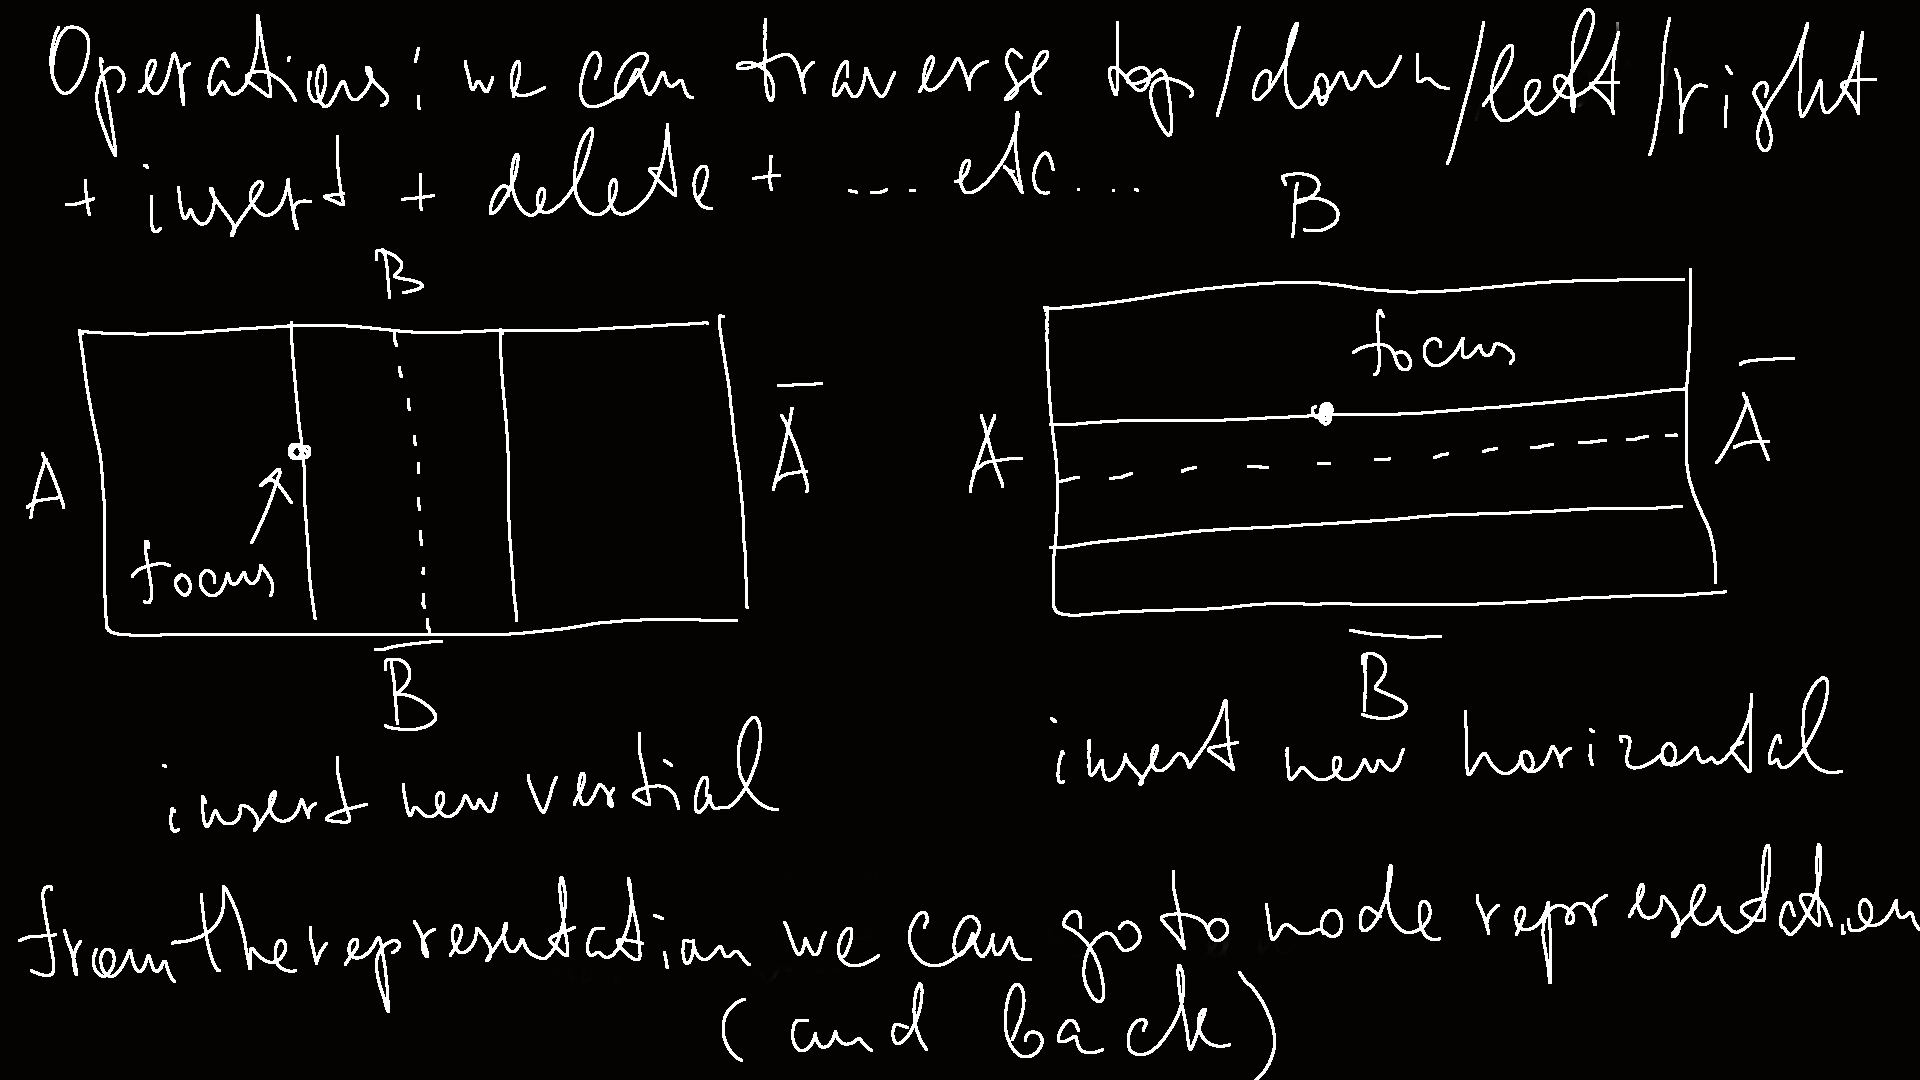 Operations: we can traverse top/down/left/right
+ insert + delete + ... etc...
B
B
focus
A
A̅
A
A̅
focus
B̅
B̅
insert new vertial
insert new horizontal
from the representation we can go to node representation
(and back)